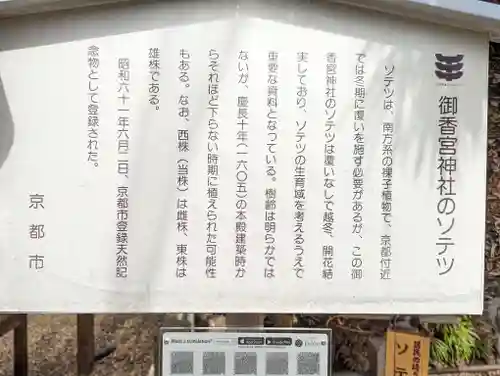 御香宮神社のソテツ
ソテツは、南方系の裸子植物で、京都付近
では冬期に覆いを施す必要があるが、この御
香宮神社のソテツは覆いなしで越冬、開花結
実しており、ソテツの生育域を考えるうえで
重要な資料となっている。樹齢は明らかでは
ないが、慶長十年(一六〇五)の本殿建築時か
らそれほど下らない時期に植えられた可能性
もある。なお、西株(当株)は雌株、東株は
雄株である。
昭和六十一年六月二日、京都市登録天然記
念物として登録された。
京都市
ソテ